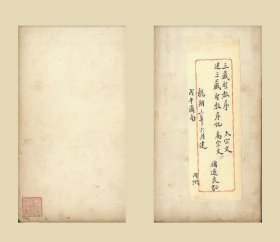 三藏聖教序 太宗文
述三藏聖教序記 高宗文 褚遂良書
龍朔三年六月建
戊午